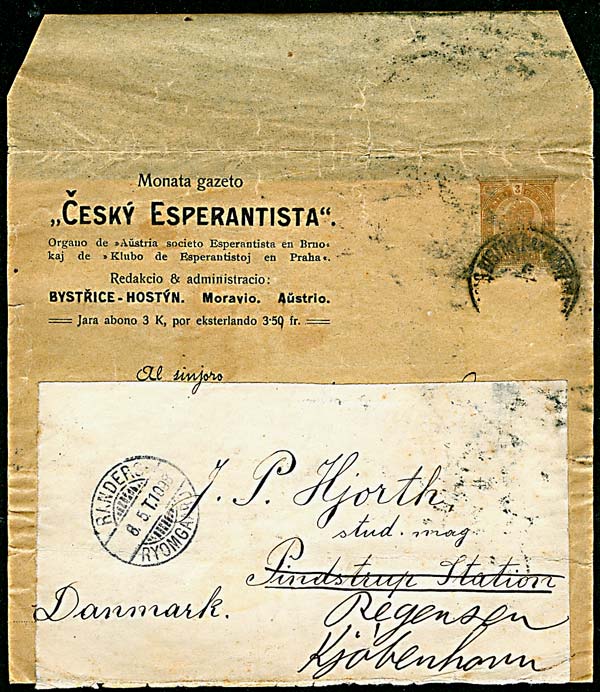 Monata gazeto
„ČESKÝ ESPERANTISTA“.
Organo de »Aŭstria societo Esperantista en Brno«
kaj de »Klubo de Esperantistoj en Praha«.
Redakcio & administracio:
BYSTŘICE-HOSTÝN. Moravio. Aŭstrio.
Jara abono 3 K, por eksterlando 3·50 fr.
3
Al sinjoro
J. P. Hjorth
stud. mag
Pindstrup Station
Danmark.
Regensen
Kjöbenhavn
RANDERS
8.5.
RYOMGAARD